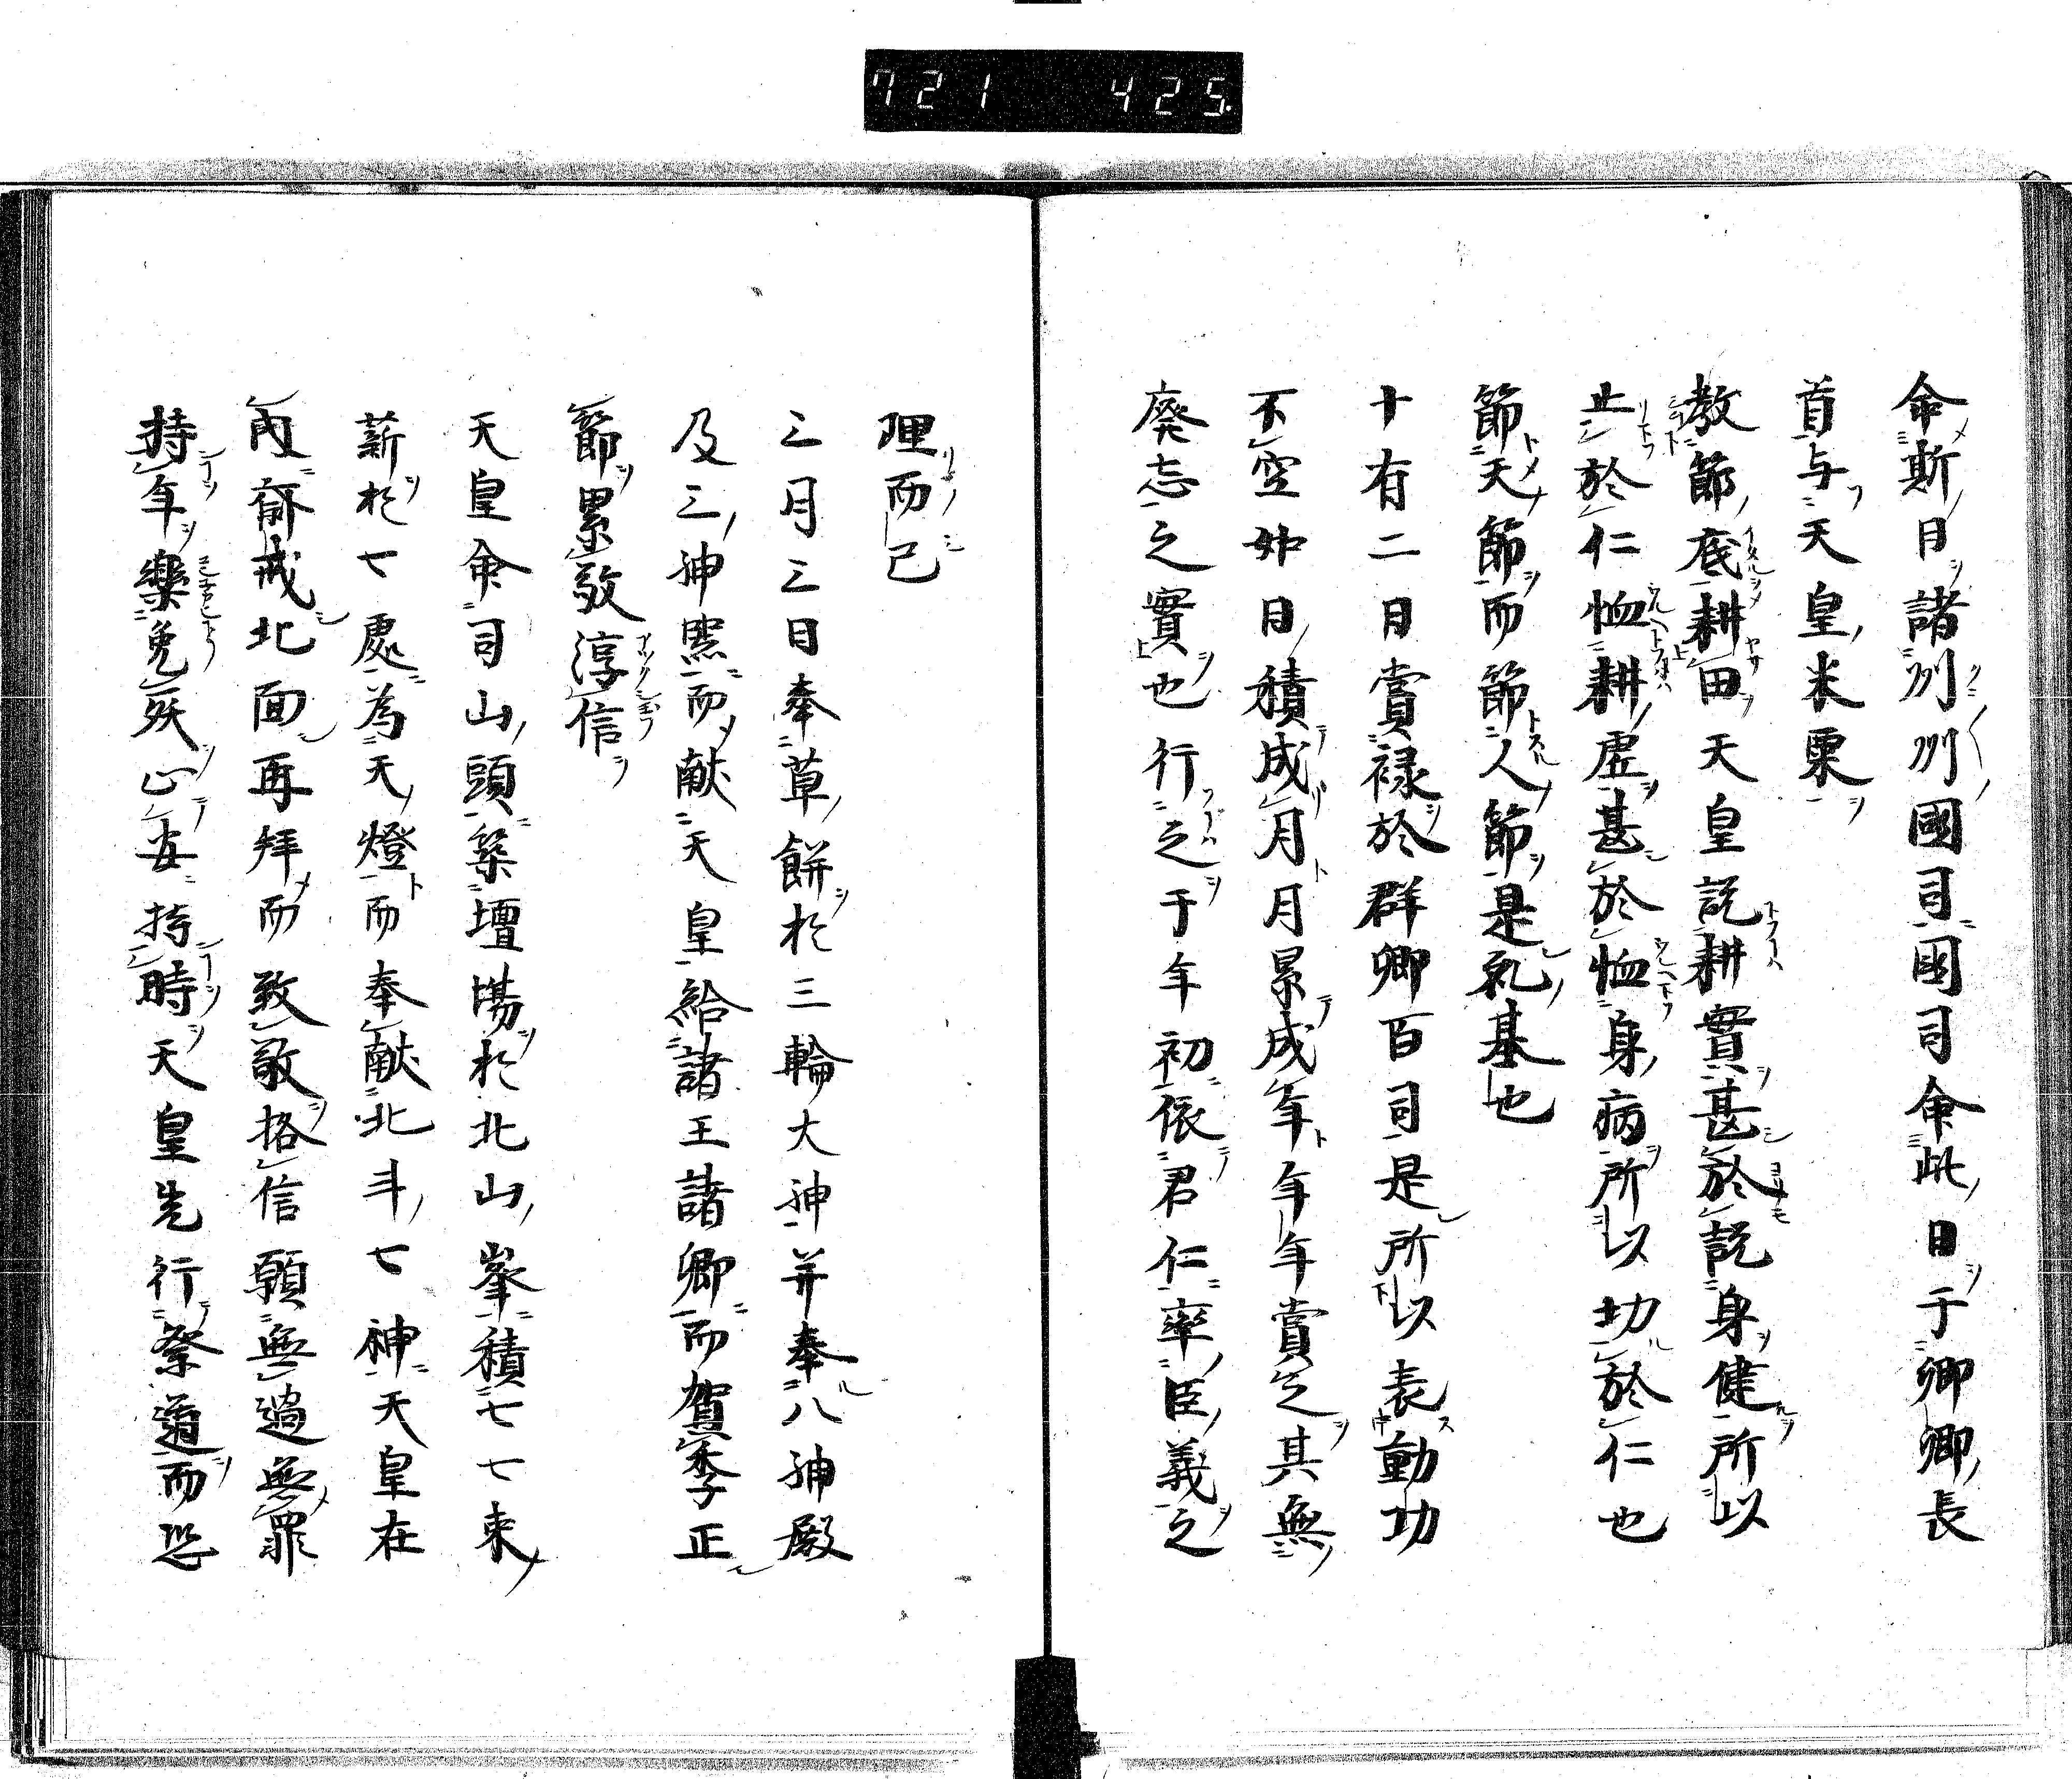 721 425
命斯日諸州州國司國司命此日于卿卿長
首与天皇米粟
教節底耕田天皇説耕實甚於説身健所以
止於仁恤耕虚甚於恤身病所以功於仁也
節天節而節人節是礼基也
十有二月賞禄於群卿百司是所以表動功
不空如日積成月月累成年年年賞之其無
廃忘之實也行之于年初依君仁率臣義之
理而已
三月三日奉草餅於三輪大神并奉八神殿
及三神黑而献天皇給諸王諸卿而賀季正
節累敬淳信
天皇命司山頭築壇場於北山峯積七七束
薪於七處為天燈而奉献北斗七神天皇在
内齋戒北面再拜而致敬格信願無過無罪
持年樂免殃心安持時天皇先行祭道而恐